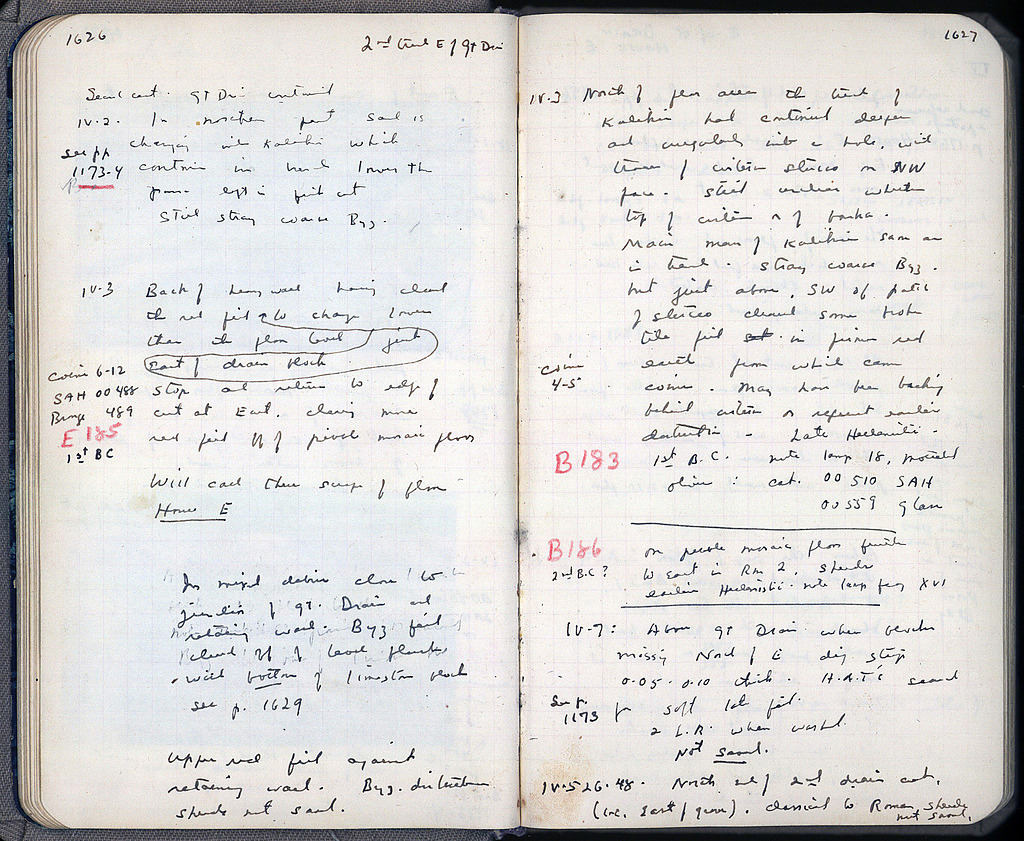 1626
2nd trench E of Gt Drain
Second cut. Gt Drain continued
IV-2. In northern part soil is
changing into Kalikia which
see pp
1173-4
continues in trench lower than
left in first cut
Still stray coarse Byz.
IV-3 Back of heavy wall having cleared
the red fill to change lower
than the floor level / just
east of drain block
coins 6-12
SAH 00 488
Bronze 489
E 185
1st BC
stop and return to edge of
cut at East. clearing more
red fill off of pebble mosaic floor
Will call these scraps of floor
House E
In mixed debris close to
junction of Gt. Drain and
retaining wall. Byz fill
cleared off of level
with bottom of limestone block
see p. 1629
Upper red fill against
retaining wall. Byz. disturbance
sherds not saved.
1627
IV-3 North of floor area the trench of
Kalikia had continued deeper
and irregularly into a hole, with
traces of cistern stucco on NW
face. Still unclear whether
top of cistern or of
Main mass of Kalikia same as
in trench. Stray coarse Byz.
but just above, SW of patch
of stucco cleared some broken
tile fill in red
coins
4-5
earth from which came
coins. May have been backing
behind cistern or represent earlier
destruction - Late Hellenistic -
B 183
1st B.C. note lamp 18, moulded
cat. 00 510 SAH
00 559 glass
B 186
2nd B.C?
on pebble mosaic floor further
to East in Rm 2, sherds
earlier Hellenistic. note lamp frag XVI
IV-7: Above Gt Drain where blocks
missing North of E dig step
0.05-0.10 thick. H.A.T.'s
See p.
1173
for soft late fill.
2 L.R. when washed
Not saved.
IV-5 26-48. North end of 2nd drain cut,
(i.e. East of ). classical to Roman, sherds
not saved.